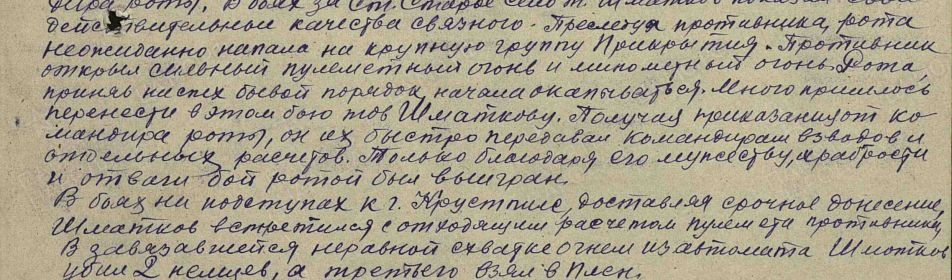 дира роты, в боях за ст. Старое село т. Шматков показал свои
действительные качества связного. Преследуя противника, рота
неожиданно напала на крупную группу Прикрытия. Противник
открыл сильный пулеметный огонь и минометный огонь. Рота,
приняв наспех бывой порядок, начала окапываться. Много пришлось
перенести в этом бою тов Шматкову. Получая приказания от ко-
мандира роты, он их быстро передавал командирам взводов и
отдельных расчетов. Только благодаря его мужеству, храбрости
и отваги бой ротой был выигран.
В боях на подступах к г. Крустпилс, доставляя срочное донесение,
Шматков встретился с отходящим расчетом пулемета противника.
В завязавшейся неравной схватке огнем из автомата Шматков
убил 2 немцев, а третьего взял в плен.